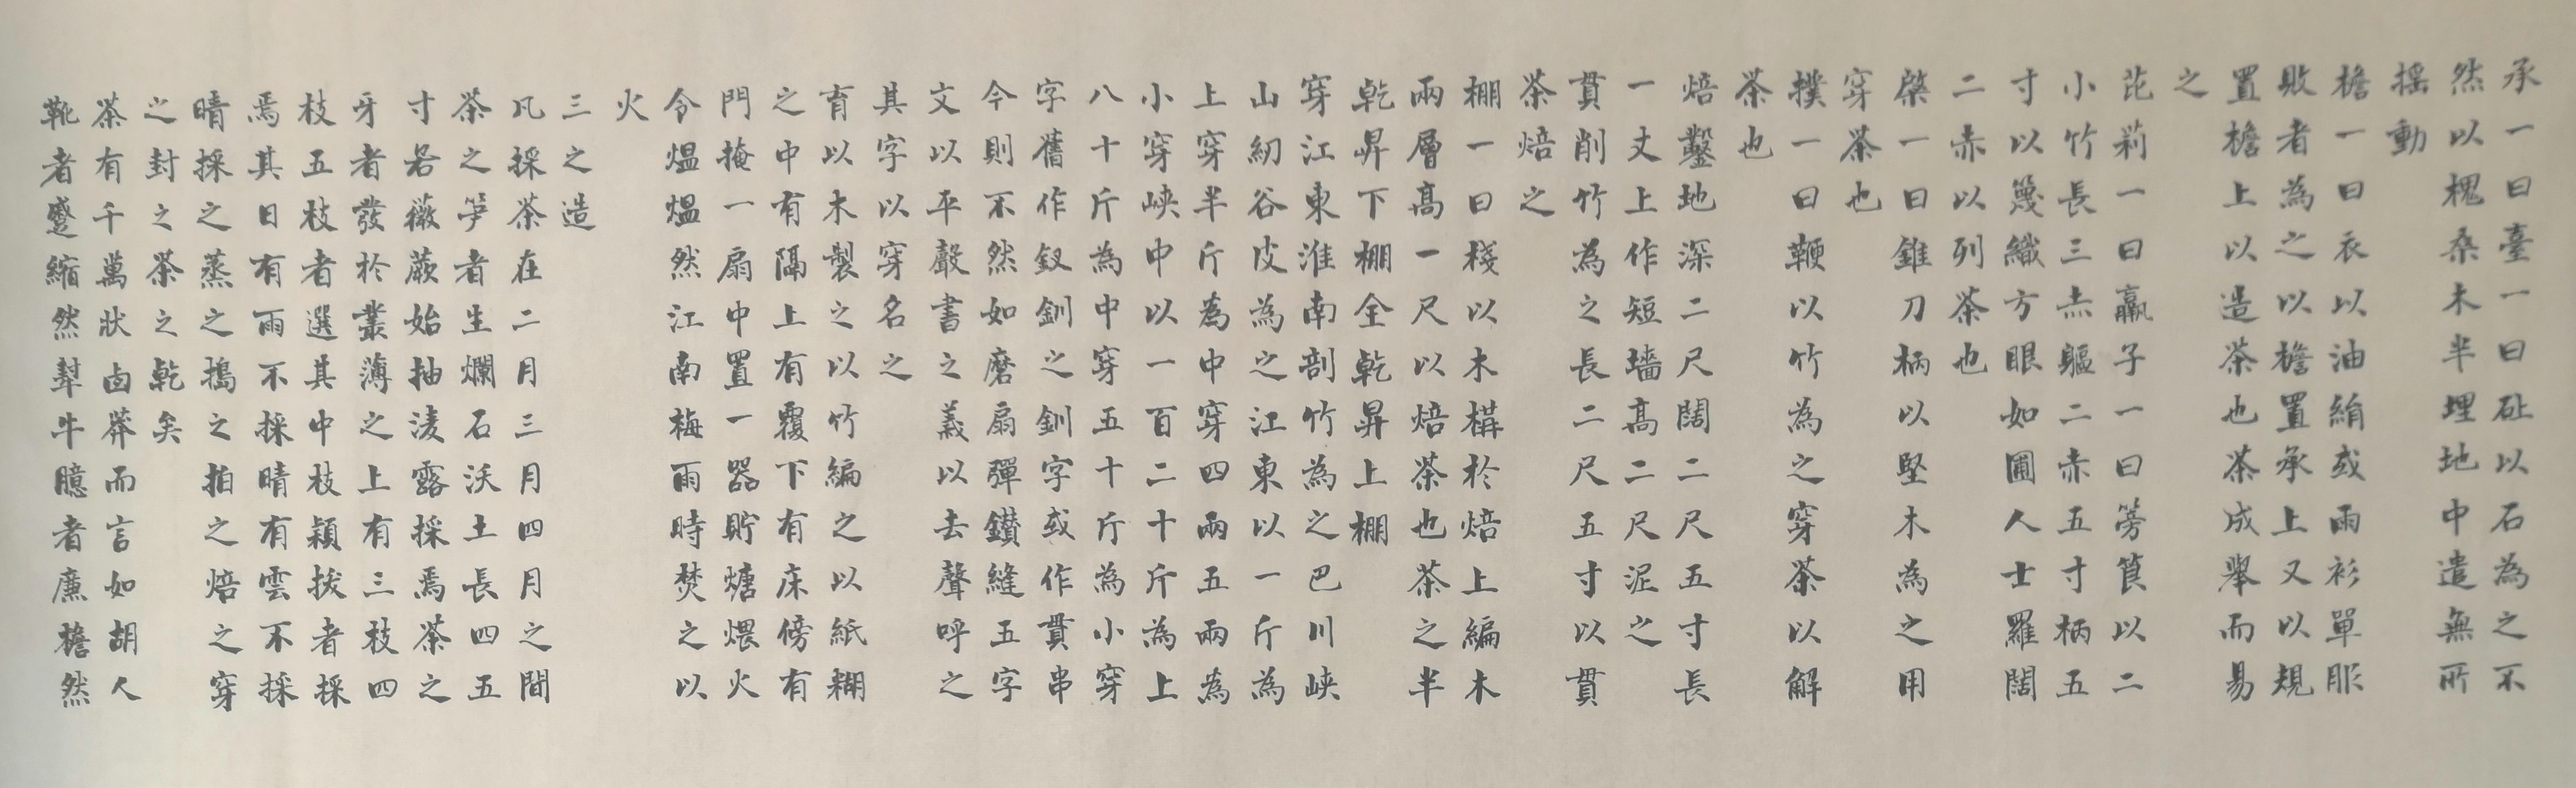 承一曰臺一曰砧以石為之不
然以槐桑木半埋地中遣無所
搖動
檐一曰衣以油絹或雨衫單服
敗者為之以檐置承上又以規
置檐上以造茶也茶成舉而易
之
芘莉一曰羸子一曰筹筤以二
小竹長三赤軀二赤五寸柄五
寸以篾織方眼如圃人士羅闊
二赤以列茶也
棨一曰錐刀柄以堅木為之用
穿茶也
撲一曰鞭以竹為之穿茶以解
茶也
焙鑿地深二尺闊二尺五寸長
一丈上作短墻高二尺泥之
貫削竹為之長二尺五寸以貫
茶焙之
棚一曰棧以木構於焙上編木
兩層高一尺以焙茶也茶之半
乾昇下棚全乾昇上棚
穿江東淮南剖竹為之巴川峽
山紉谷皮為之江東以一斤為
上穿半斤為中穿四兩五兩為
小穿峽中以一百二十斤為上
八十斤為中穿五十斤為小穿
字舊作釵釧之釧字或作貫串
今則不然如磨扇彈鑚縫五字
文以平聲書之義以去聲呼之
其字以穿名之
育以木製之以竹編之以紙糊
之中有隔上有覆下有床傍有
門掩一扇中置一器貯煻煨火
令熅熅然江南梅雨時焚之以
火
三之造
凡採茶在二月三月四月之間
茶之笋者生爛石沃土長四五
寸若薇蕨始抽淩露採焉茶之
牙者發於叢薄之上有三枝四
枝五枝者選其中枝穎拔者採
焉其日有雨不採晴有雲不採
晴採之蒸之搗之拍之焙之穿
之封之茶之乾矣
茶有千萬狀鹵莽而言如胡人
靴者蹙縮然犎牛臆者廉檐然